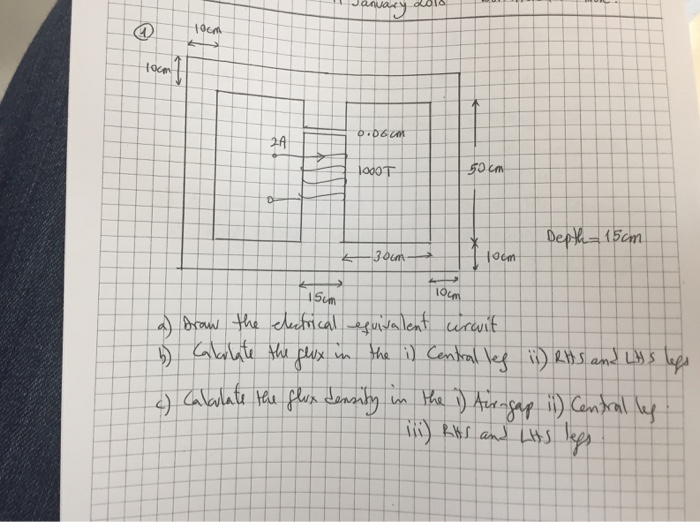 January 2018
①
10cm
10cm
2A
0.06cm
1000T
50cm
Depth = 15cm
30cm
10cm
15cm
10cm
a) Draw the electrical equivalent circuit
b) Calculate the flux in the i) Central leg ii) RHS and LHS legs
c) Calculate the flux density in the i) Air-gap ii) Central leg.
iii) RHS and LHS legs.